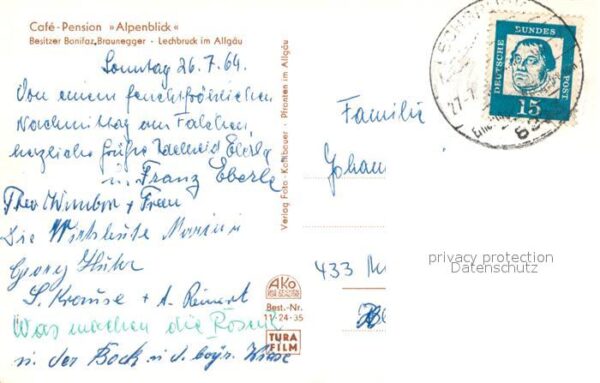 Café-Pension »Alpenblick«
Besitzer Bonifaz Braunegger - Lechbruck im Allgäu
Sonntag 26.7.64
Von einem feuchtfröhlichen
Nachmittag am Falchen
herzliche Grüße Adelheid Eberle
u. Franz Eberle
Theo Wimber + Frau
Die Wirtsleute
Georg Huber
S. Krause + A. Reinert
Was machen die Rosen
u. der Bock u. d. bayr. Wiese
Verlag Foto-Kolbauer · Pfronten im Allgäu
AKO
Best.-Nr.
11-24-35
TURA
FILM
DEUTSCHE BUNDESPOST
15
27.7.
Familie
Johan
433 M
privacy protection
Datenschutz